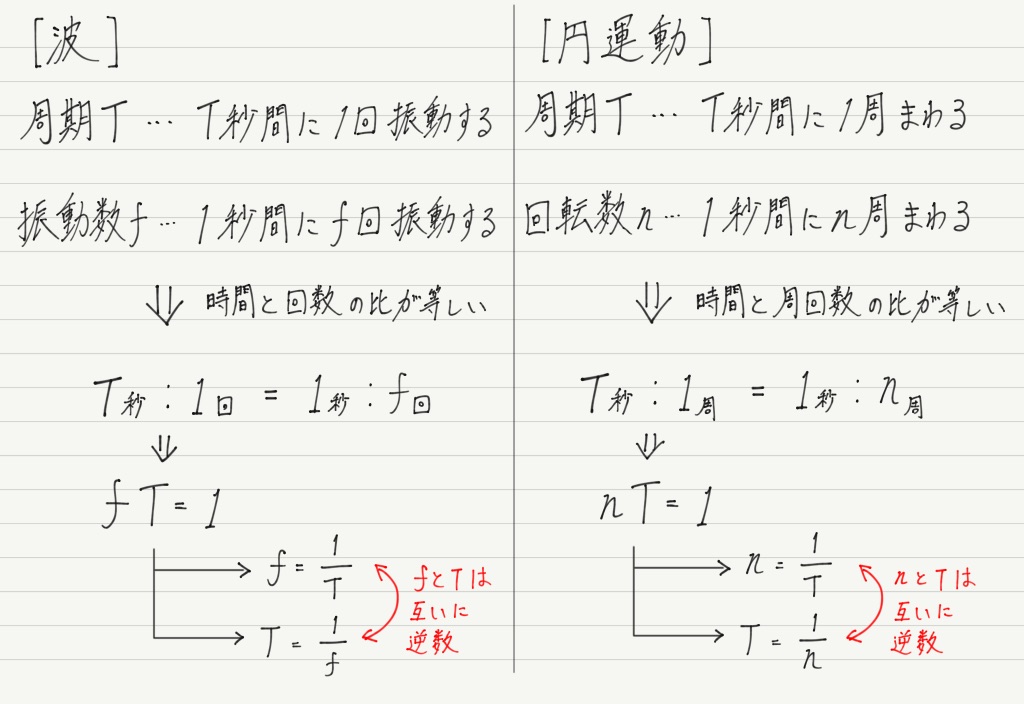 [波]
周期T … T秒間に1回振動する
振動数f … 1秒間にf回振動する
⇓ 時間と回数の比が等しい
T秒 : 1回 = 1秒 : f回
⇓
fT = 1
→ f = 1/T
→ T = 1/f
fとTは
互いに
逆数
[円運動]
周期T … T秒間に1周まわる
回転数n … 1秒間にn周まわる
⇓ 時間と周回数の比が等しい
T秒 : 1周 = 1秒 : n周
⇓
nT = 1
→ n = 1/T
→ T = 1/n
nとTは
互いに
逆数